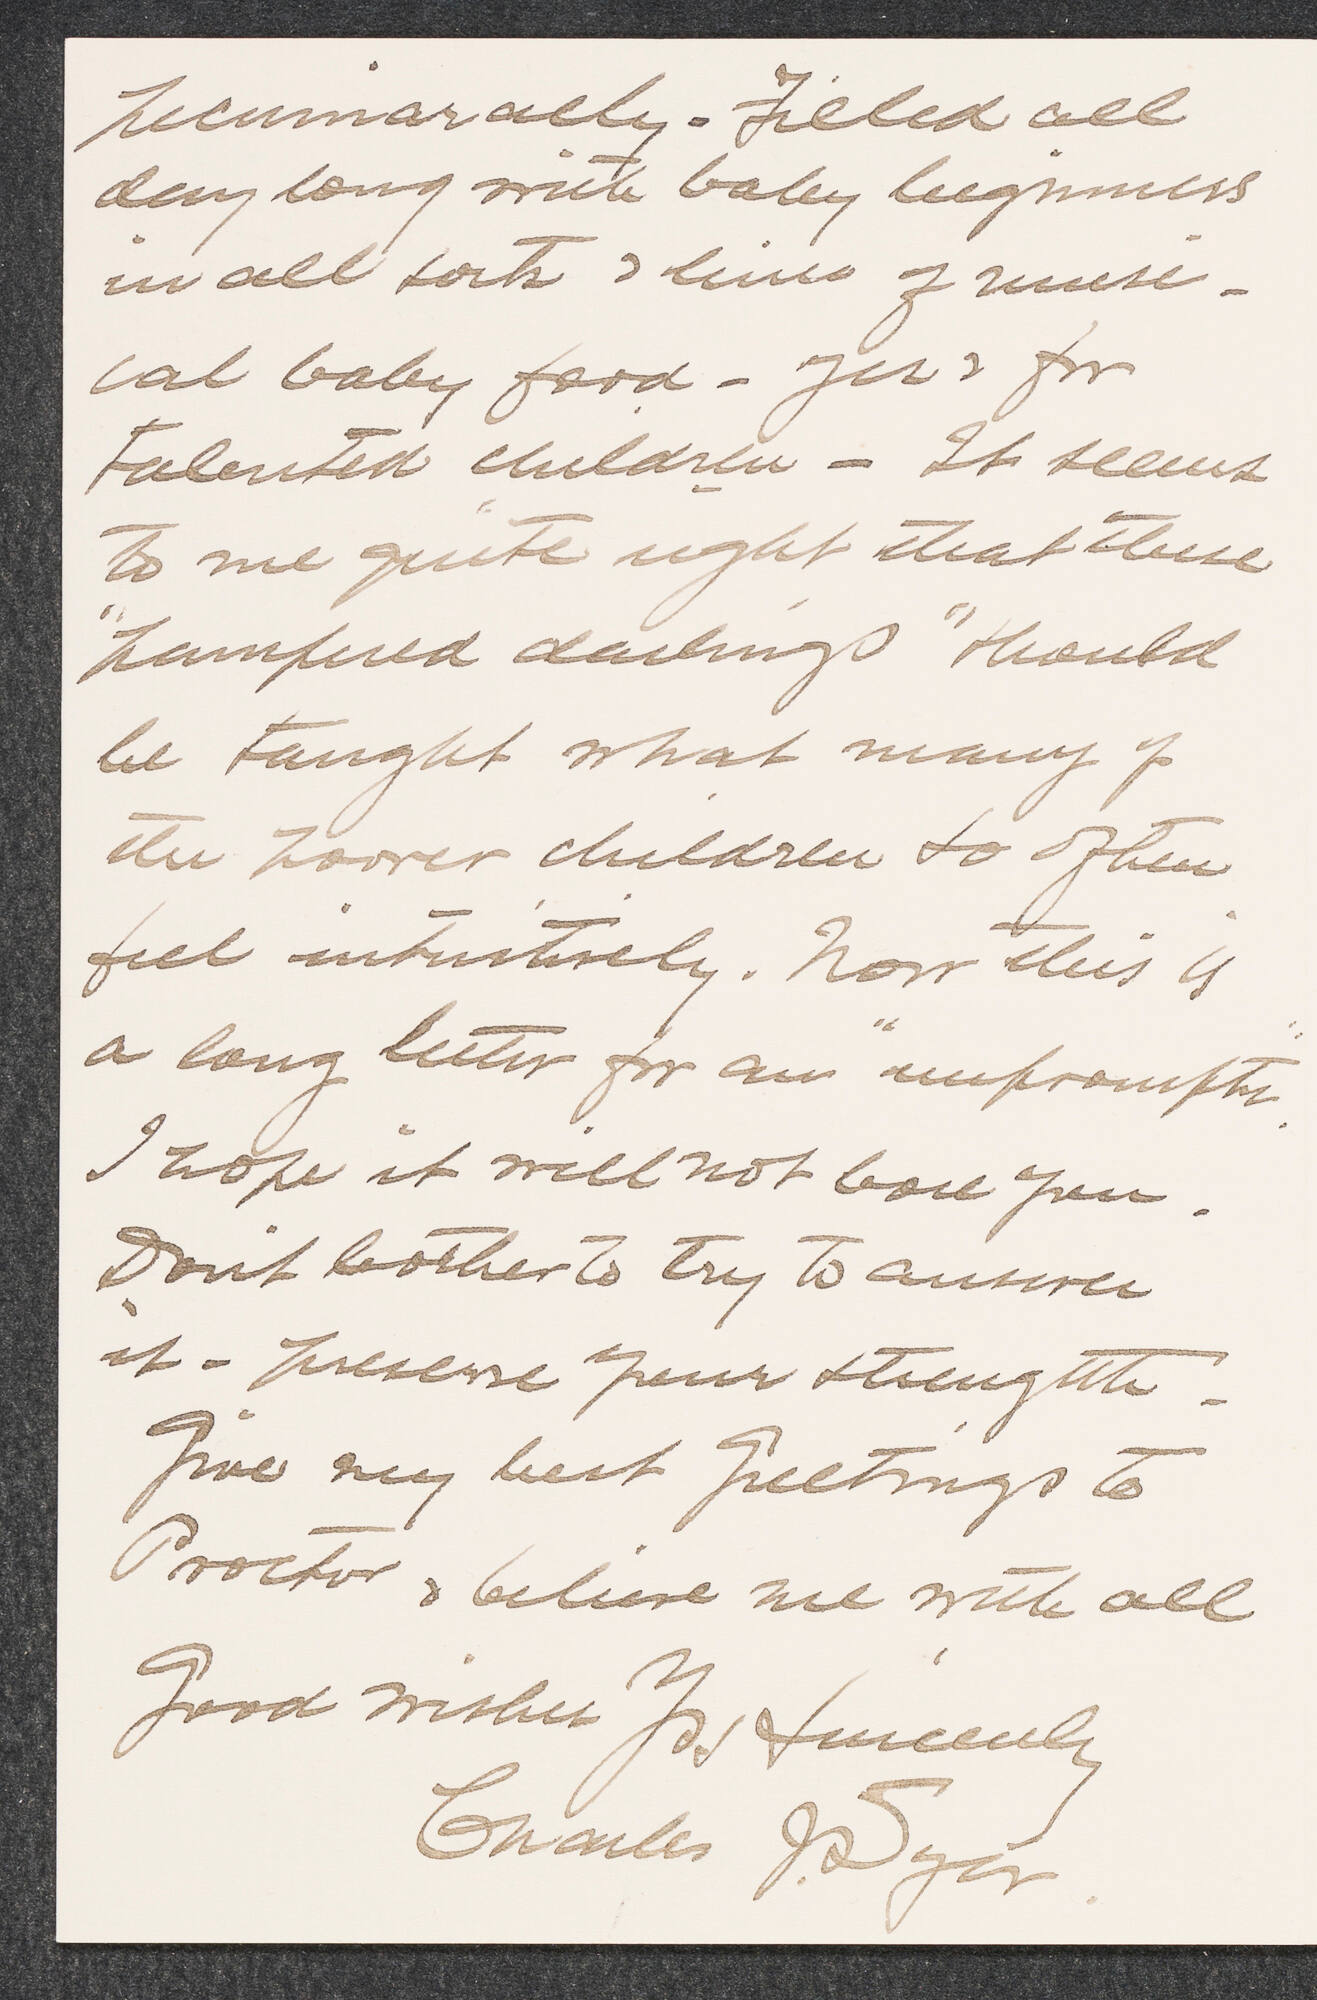 pecuniarally. Filled all
day long with baby beginners
in all sorts & lines of musi-
cal baby food - yes & for
talented children - It seems
to me quite right that these
"pampered darlings" should
be taught what many of
the poorer children so often
feel intuitively. Now this is
a long letter for an "impromptu".
I hope it will not bore you.
Don't bother to try to answer
it - preserve your strengtth -
Give my best Greetings to
Proctor, & believe me with all
Good wishes Yrs Sincerely
Charles J. Dyer.